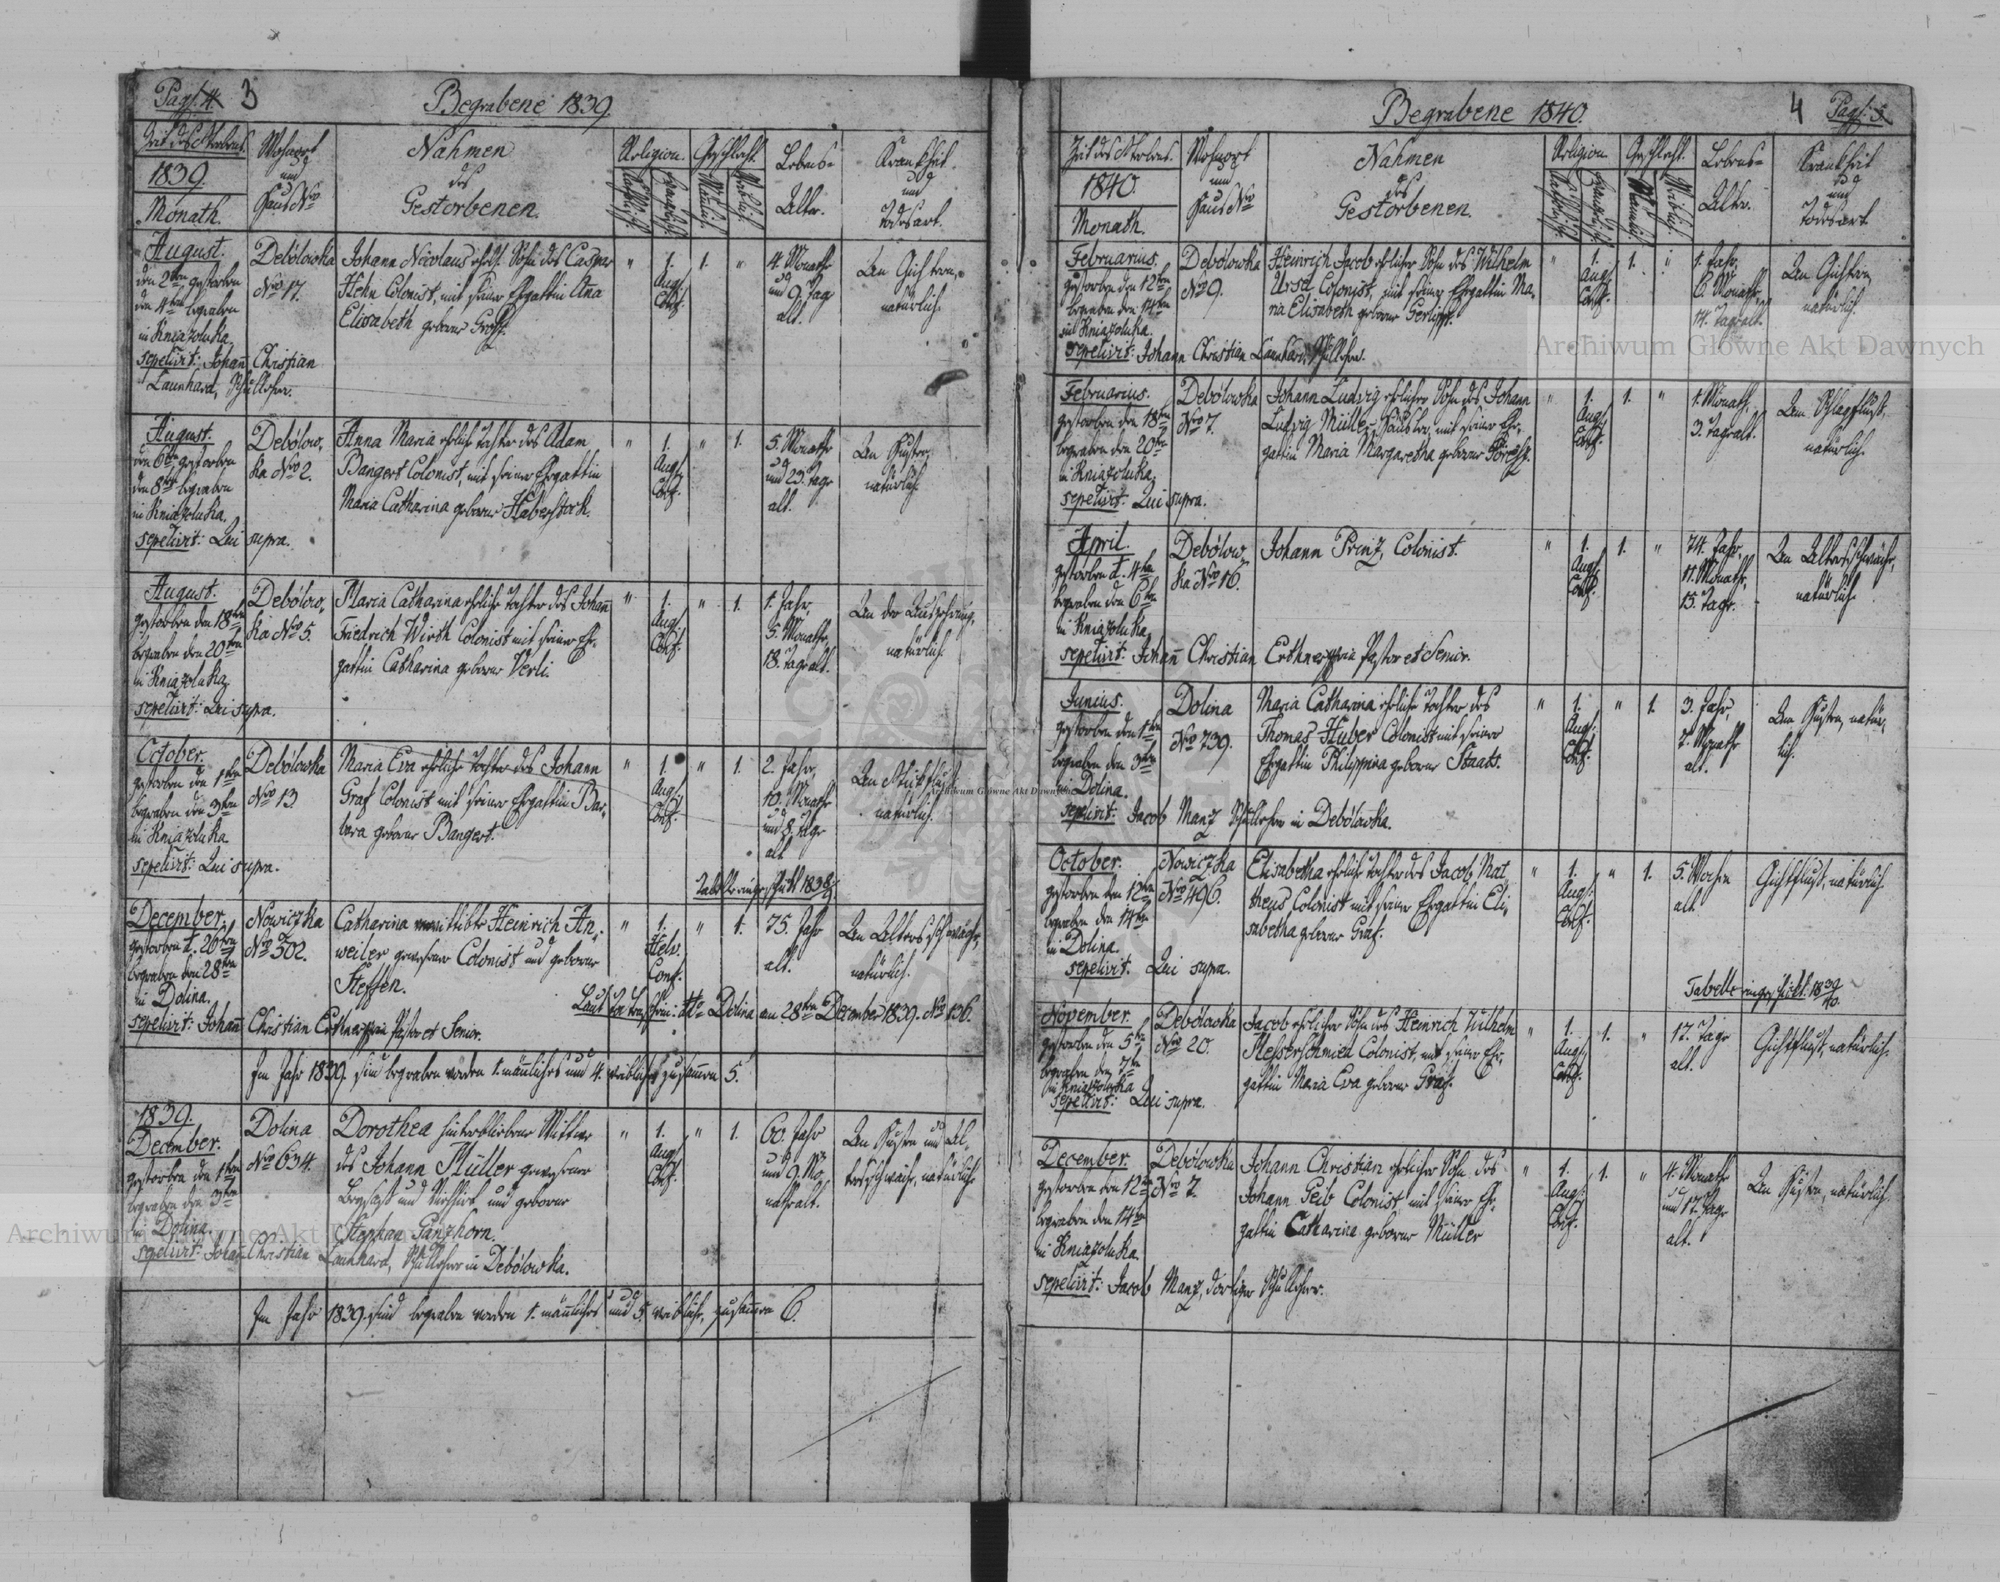 Pag. 4. 3
Begrabene 1839.
Zeit des Sterbens.
1839.
Monath.
Wohnort
und
Haus Nro
Nahmen
des
Gestorbenen.
Religion.
Geschlecht.
Lebens=
Alter.
Krankheit
und
Todesart.
August.
den 2ten gestorben
den 4ten begraben
in Kniazoluka.
sepelivit: Johann Christian
Launhard, Schullehrer.
Debólowka
Nro 17.
Johann Nicolaus ehel. Sohn des Caspar
Hehn Colonist, mit seiner Ehegattin Anna
Elisabeth geborne Groß.
" 1. 1. "
Aug.
Conf.
4. Monathe
und 9. Tag
alt.
An Gichtern,
natürlich.
August.
den 6ten gestorben
den 8ten begraben
in Kniazoluka.
sepelivit: Qui supra.
Debólow,
ka Nro 2.
Anna Maria eheliche Tochter des Adam
Bangert Colonist, mit seiner Ehegattin
Maria Catharina geborne Haberstock.
" 1. " 1.
Aug.
Conf.
5. Monathe
und 23. Tage
alt.
An Husten,
natürlich.
August.
gestorben den 18ten
begraben den 20ten
in Kniazoluka.
sepelivit: Qui supra.
Debólow,
ka Nro 5.
Maria Catharina eheliche Tochter des Johann
Friedrich Wirth Colonist mit seiner Ehe,
gattin Catharina geborne Verli.
" 1. " 1.
Aug.
Conf.
1. Jahr,
5. Monathe,
18. Tage alt.
An der Auszehrung,
natürlich.
October.
gestorben den 1ten
begraben den 3ten
in Kniazoluka
sepelivit: Qui supra.
Debólowka
Nro 13
Maria Eva eheliche Tochter des Johann
Graf Colonist mit seiner Ehegattin Bar,
bara geborne Bangert.
" 1. " 1.
Aug.
Conf.
2. Jahr,
10. Monathe
und 8. Tage
alt
An Stickfluß
natürlich.
Tabelle eingeschickt 1838/9.
December.
gestorben d. 26ten
begraben den 28ten
in Dolina.
sepelivit: Johann Christian Erthner Pastor et Senior.
Nowiczka
Nro 302.
Catharina Heinrich An,
weiler gewesener Colonist und geborne
Steffen.
" 1. " 1.
Helv.
Conf.
75. Jahr
alt.
An Altersschwäche,
natürlich.
Dolina am 28ten December 1839. Nro 136.
Im Jahr 1839. sind begraben worden 1. männliches und 4. weibliche zusammen 5.
1839.
December.
gestorben den 1ten
begraben den 3ten
in Dolina.
sepelivit: Johann Christian Launhard, Schullehrer in Debólowka.
Dolina
Nro 634.
Dorothea hinterbliebene Wittwe
des Johann Müller gewesener
und geborne
Stephan Ganzhorn.
" 1. " 1.
Aug.
Conf.
60. Jahr
und 9. Mo,
nath alt.
An Husten und Al,
tersschwäche, natürlich
Im Jahr 1839. sind begraben worden 1. männliches und 5. weibliche, zusammen 6.
4 Pag. 5.
Begrabene 1840.
Zeit des Sterbens.
1840.
Monath.
Wohnort
und
Haus Nro
Nahmen
des
Gestorbenen.
Religion
Geschlecht.
Lebens=
Alter.
Krankheit
und
Todesart
Februarius.
gestorben den 12ten
begraben den 14ten
in Kniazoluka.
sepelivit: Johann Christian Launhard Schullehrer.
Debólowka
Nro 9.
Heinrich Jacob ehelicher Sohn des Wilhelm
Ursd Colonist, mit seiner Ehegattin Ma,
ria Elisabeth geborne Gerlipp.
" 1. 1. "
Aug.
Conf.
1. Jahr,
6. Monathe,
14. Tage alt.
An Gichtern
natürlich.
Februarius.
gestorben den 18ten
begraben den 20ten
in Kniazoluka.
sepelivit: Qui supra.
Debólowka
Nro 7.
Johann Ludvig ehelicher Sohn des Johann
Ludvig Müller Häusler, mit seiner Ehe,
gattin Maria Margaretha geborne
" 1. 1. "
Aug.
Conf.
1. Monath,
3. Tage alt.
An Schlagfluß,
natürlich.
April.
gestorben d. 4ten
begraben den 6ten
in Kniazoluka
sepelivit: Johann Christian Erthner Pastor et Senior.
Debólow,
ka Nro 16.
Johann Prinz, Colonist.
" 1. 1. "
Aug.
Conf.
74. Jahr,
11. Monathe,
15. Tage.
An Altersschwäche,
natürlich
Junius.
gestorben den 1ten
begraben den 3ten
in Dolina.
sepelivit: Jacob Manz Schullehrer in Debólowka.
Dolina
Nro 739.
Maria Catharina eheliche Tochter des
Thomas Huber Colonist mit seiner
Ehegattin Philippina geborne Staats.
" 1. " 1.
Aug.
Conf.
3. Jahr,
7. Monathe
alt.
An Husten, natür,
lich.
October.
gestorben den 12ten
begraben den 14ten
in Dolina.
sepelivit. Qui supra.
Nowiczka
Nro 496.
Elisabetha eheliche Tochter des Jacob Mat
theus Colonist mit seiner Ehegattin Eli,
sabetha geborne Graf.
" 1. " 1.
Aug.
Conf.
5. Wochen
alt.
Gichtfluß, natürlich.
Tabelle eingeschickt 1839/40.
November.
gestorben den 5ten
begraben den 7ten
in Kniazoluka
sepelivit: Qui supra.
Debólowka
Nro 20.
Jacob ehelicher Sohn des Heinrich Wilhelm
Messerschmied Colonist, mit seiner Ehe,
gattin Maria Eva geborne Graf.
" 1. 1. "
Aug.
Conf.
17. Tage
alt.
Gichtfluß, natürlich.
December.
gestorben den 12ten
begraben den 14ten
in Kniazoluka.
sepelivit: Jacob Manz, dortiger Schullehrer.
Debólowka
Nro 7.
Johann Christian ehelicher Sohn des
Johann Geib Colonist, mit seiner Ehe,
gattin Catharina geborne Müller
" 1. 1. "
Aug.
Conf.
4. Monathe
und 17. Tage
alt.
An Husten, natürlich.
Archiwum Główne Akt Dawnych
Archiwum Główne Akt Dawnych
Archiwum Główne Akt D